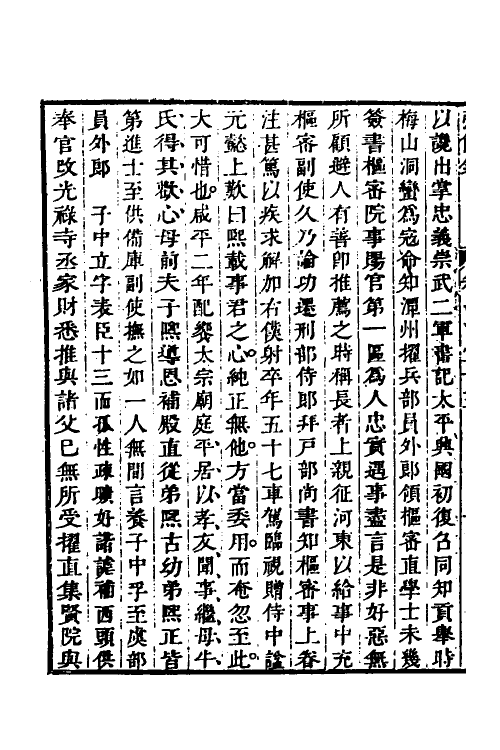 以讒出掌忠義崇武二軍書記太平興國初復召同知貢舉時
梅山洞蠻爲寇命知潭州擢兵部員外郎領樞密直學士未幾
簽書樞密院事賜官第一區爲人忠實遇事盡言是非好惡無
所顧避人有善卽推薦之時稱長者上親征河東以給事中充
樞密副使久乃論功還刑部侍郎拜戸部尚書知樞密事上眷
注甚篤以疾求解加右僕射卒年五十七車駕臨視贈侍中諡
元懿上歎曰熙載事君之心純正無他方當委用而奄忽至此
大可惜也咸平二年配饗太宗廟庭平居以孝友聞事繼母牛
氏得其歡心母前夫子熙導恩補殿直從弟熙古幼弟熙正皆
第進士至供備庫副使撫之如一人無間言養子中孚至虞部
員外郎　子中立字表臣十三而孤性疎曠好諸謔補西頭供
奉官改光祿寺丞家財悉推與諸父已無所受擢直集賢院與